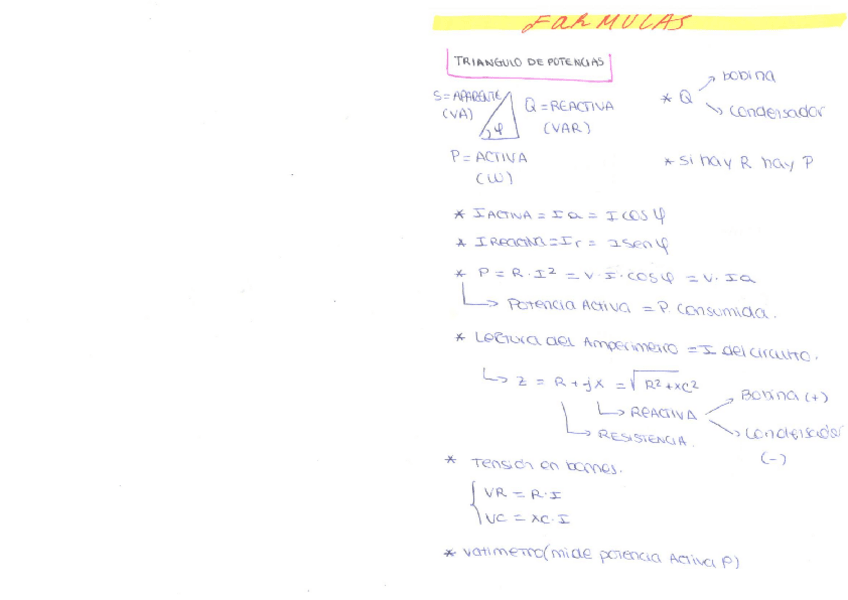 FORMULAS
TRIANGULO DE POTENCIAS
S = APARENTE
(VA)
φ
Q = REACTIVA
(VAR)
P = ACTIVA
(W)
* Q
bobina
condensador
* Si hay R hay P
* I ACTIVA = Ia = I cos φ
* I REACTIVA = Ir = I sen φ
* P = R · I² = V · I · cos φ = V · Ia
Potencia Activa = P. consumida.
* Lectura del Amperimetro = I del circuito.
Z = R + jX = √R² + XC²
REACTIVA
Bobina (+)
Condensador
(-)
RESISTENCIA.
* Tensión en bornes.
VR = R · I
VC = XC · I
* Vatimetro (mide potencia Activa P)